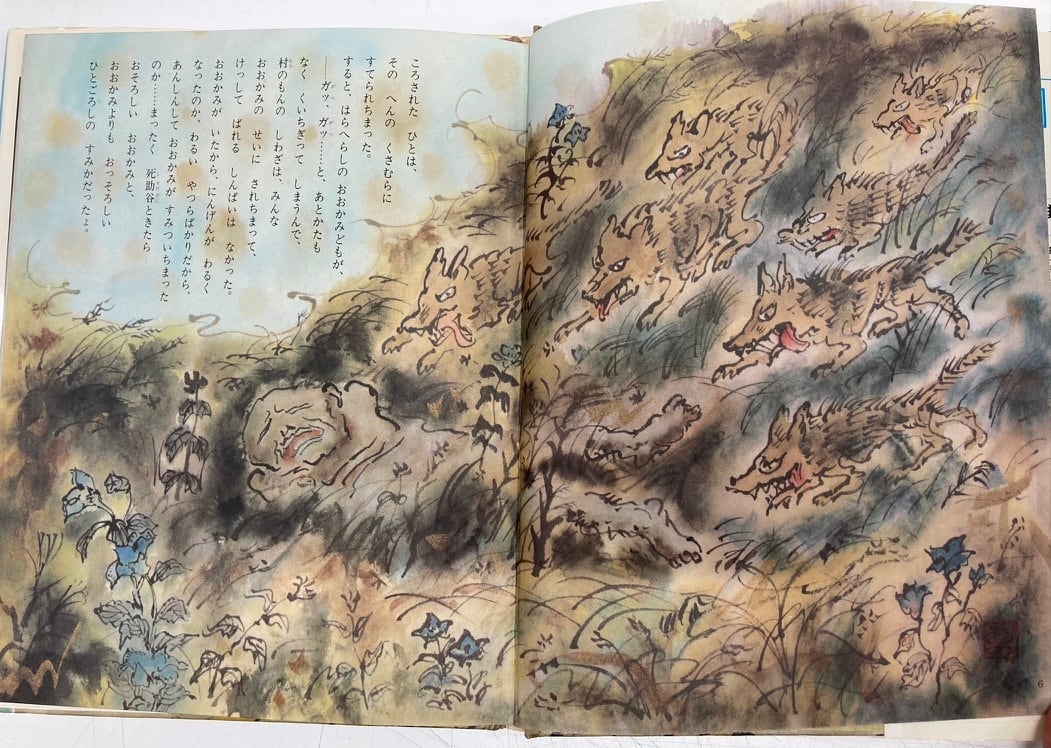 ころされた　ひとは、
その　へんの　くさむらに
すてられちまった。
すると、はらへらしの　おおかみどもが、
――ガッ、ガッ……と、あとかたも
なく　くいちぎって　しまうんで、
村のもんの　しわざは、みんな
おおかみの　せいに　されちまって、
けっして　ばれる　しんぱいは　なかった。
おおかみが　いたから、にんげんが　わるく
なったのか、わるい　やつらばかりだから、
あんしんして　おおかみが　すみついちまった
のか……まったく　死助谷ときたら
おそろしい　おおかみと、
おおかみよりも　おっそろしい
ひとごろしの　すみかだったよ。
6